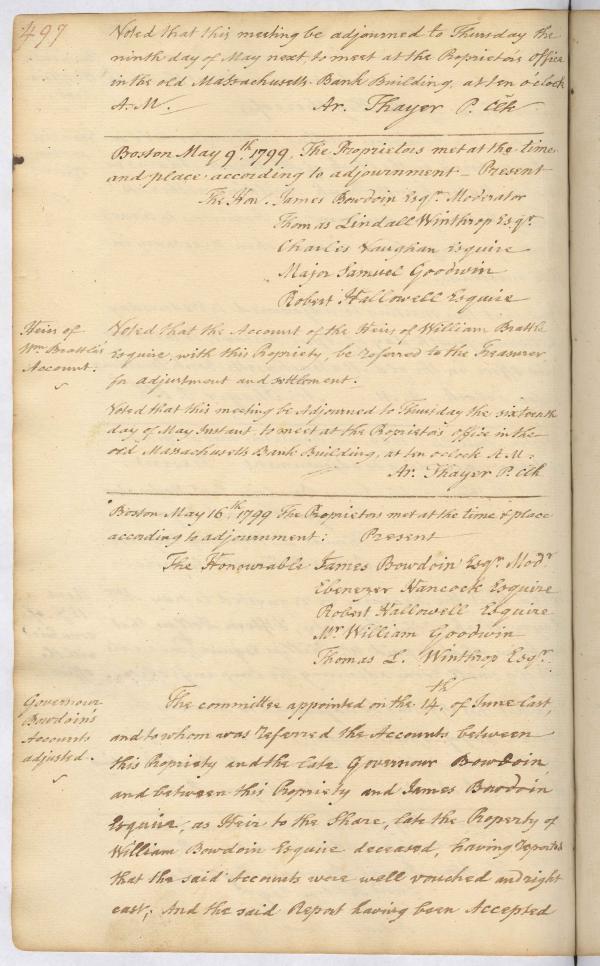 497
Voted that this meeting be adjourned to Thursday the
ninth day of May next, to meet at the Proprietors Office
in the old Massachusetts Bank Building, at ten o'clock
A.M. Ar. Thayer P. Clk
Boston May 9.th 1799. The Proprietors met at the time
and place according to adjournment - Present
The Hon. James Bowdoin Esqr. Moderator
Thomas Lindall Winthrop Esqr.
Charles Vaughan Esquire
Major Samuel Goodwin
Robert Hallowell Esquire
Heirs of
Wm. Brattle's
Account.
Voted that the Account of the Heirs of William Brattle
Esquire, with this Propriety, be referred to the Treasurer
for adjustment and settlement.
Voted that this meeting be Adjourned to Thursday the sixteenth
day of May Instant, to meet at the Proprietors office in the
old Massachusetts Bank Building, at ten o'clock A.M.
Ar. Thayer P. Clk
Boston May 16.th 1799 The Proprietors met at the time & place
according to adjournment: Present
The Honourable James Bowdoin Esqr. Modr.
Ebenezer Hancock Esquire
Robert Hallowell Esquire
Mr. William Goodwin
Thomas L. Winthrop Esqr.
Governour
Bowdoin's
Accounts
adjusted.
The committee appointed on the 14.th of June last,
and to whom was referred the Accounts between
this Propriety and the late Governour Bowdoin,
and between this Propriety and James Bowdoin
Esquire, as Heir to the Share, late the Property of
William Bowdoin Esquire deceased, having reported
that the said Accounts were well vouched and right
cast; And the said Report having been Accepted